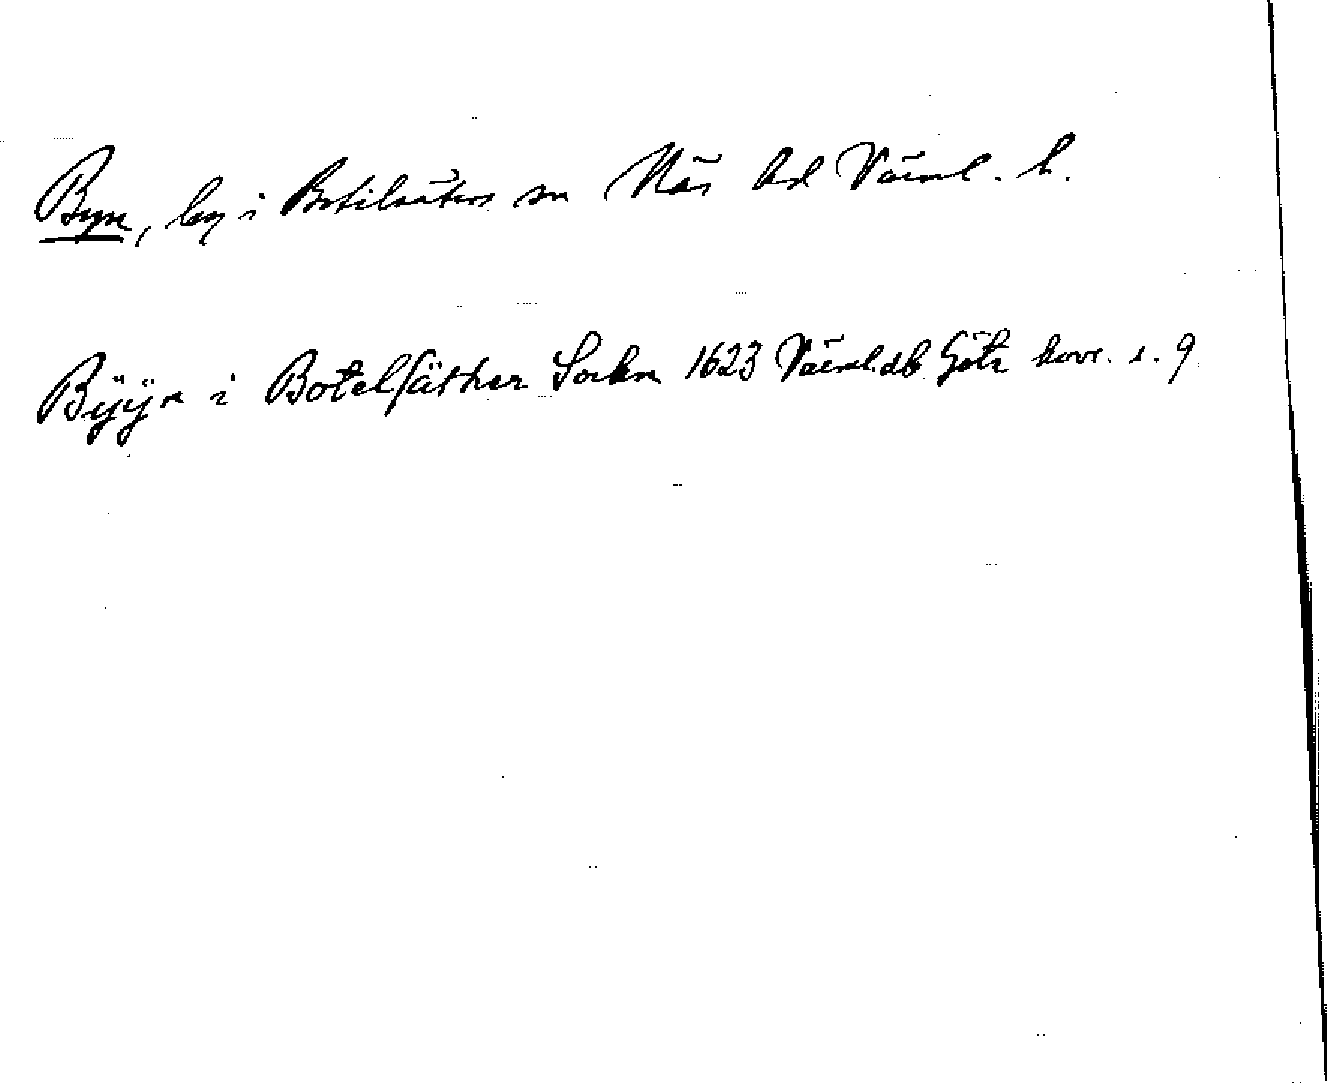 Byn, by i Botilsäters sn Näs hd Värml. l.
Bÿÿn i Botelsäther Sockn 1623 Värml.db Göta hovr. s. 9